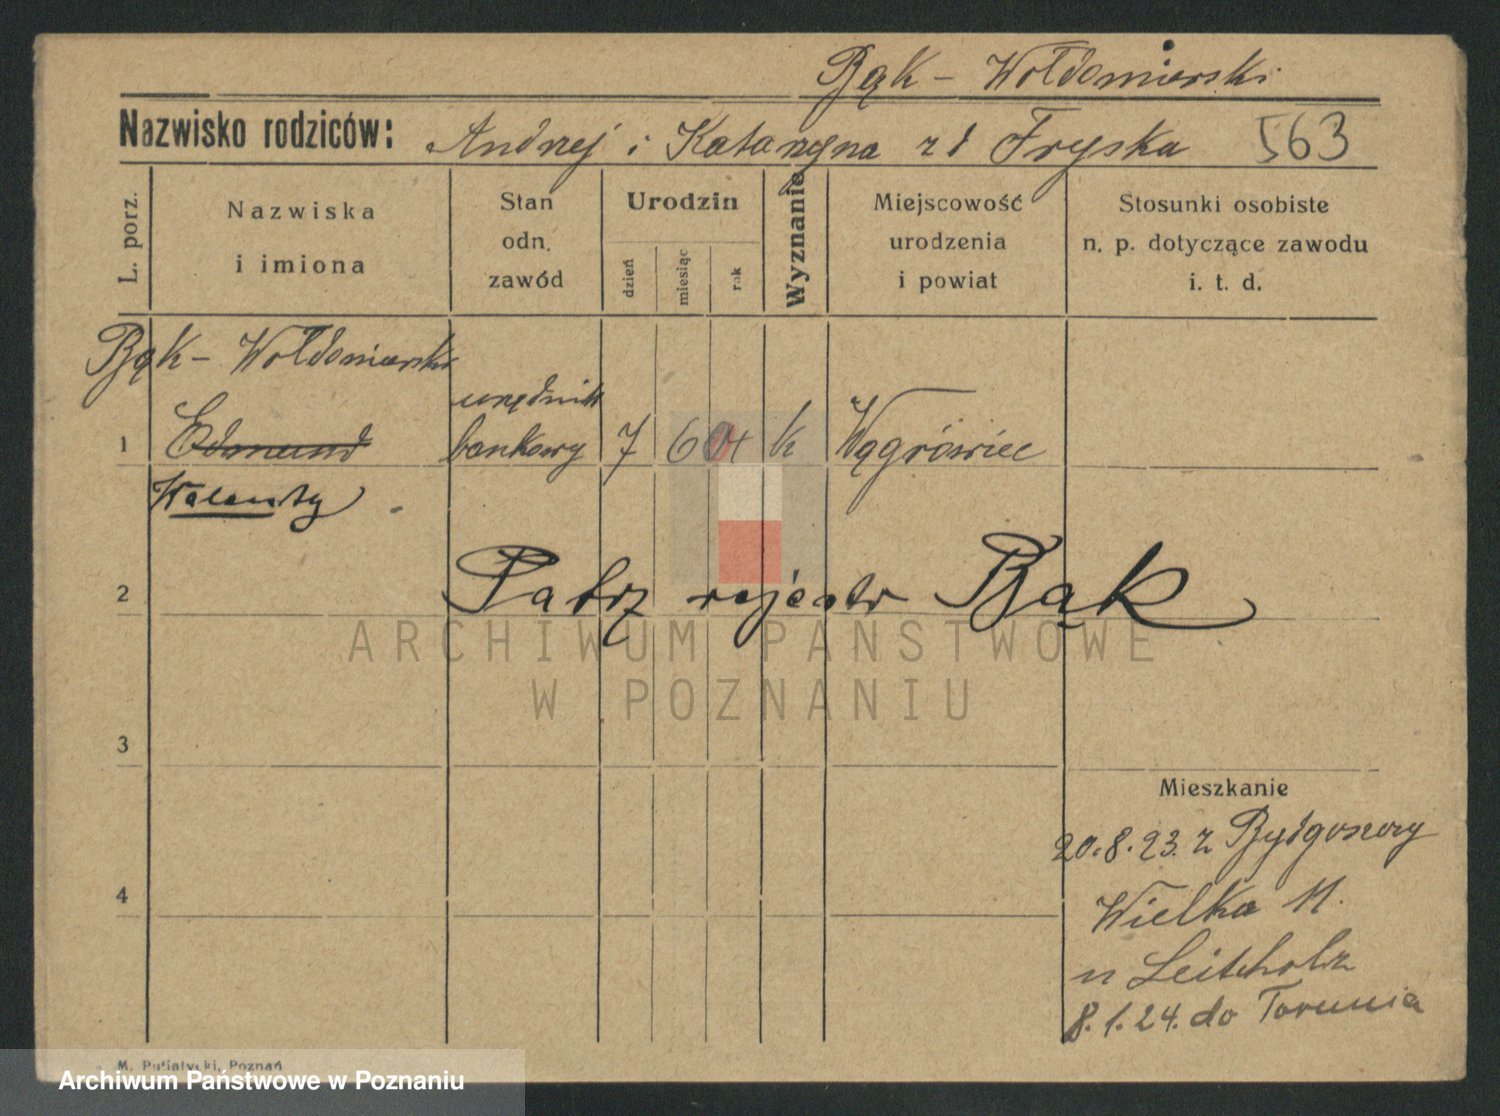 Bąk - Wołdomierski
Nazwisko rodziców: Andrzej i Katarzyna zd Fryska 563
L. porz.
Nazwiska
i imiona
Stan
odn.
zawód
Urodzin
dzień
miesiąc
rok
Wyznanie
Miejscowość
urodzenia
i powiat
Stosunki osobiste
n. p. dotyczące zawodu
i. t. d.
Bąk - Wołdomierski
urzędnik
1 Edmund bankowy 7 6 01 k Wągrówiec
Walenty
2 Patrz rejestr Bąk
ARCHIWUM PAŃSTWOWE
W POZNANIU
3
Mieszkanie
20.8.23. z Bydgoszczy
4
Wielka 11.
u Leitholz
8.1.24. do Torunia
M. Putiatycki, Poznań
Archiwum Państwowe w Poznaniu